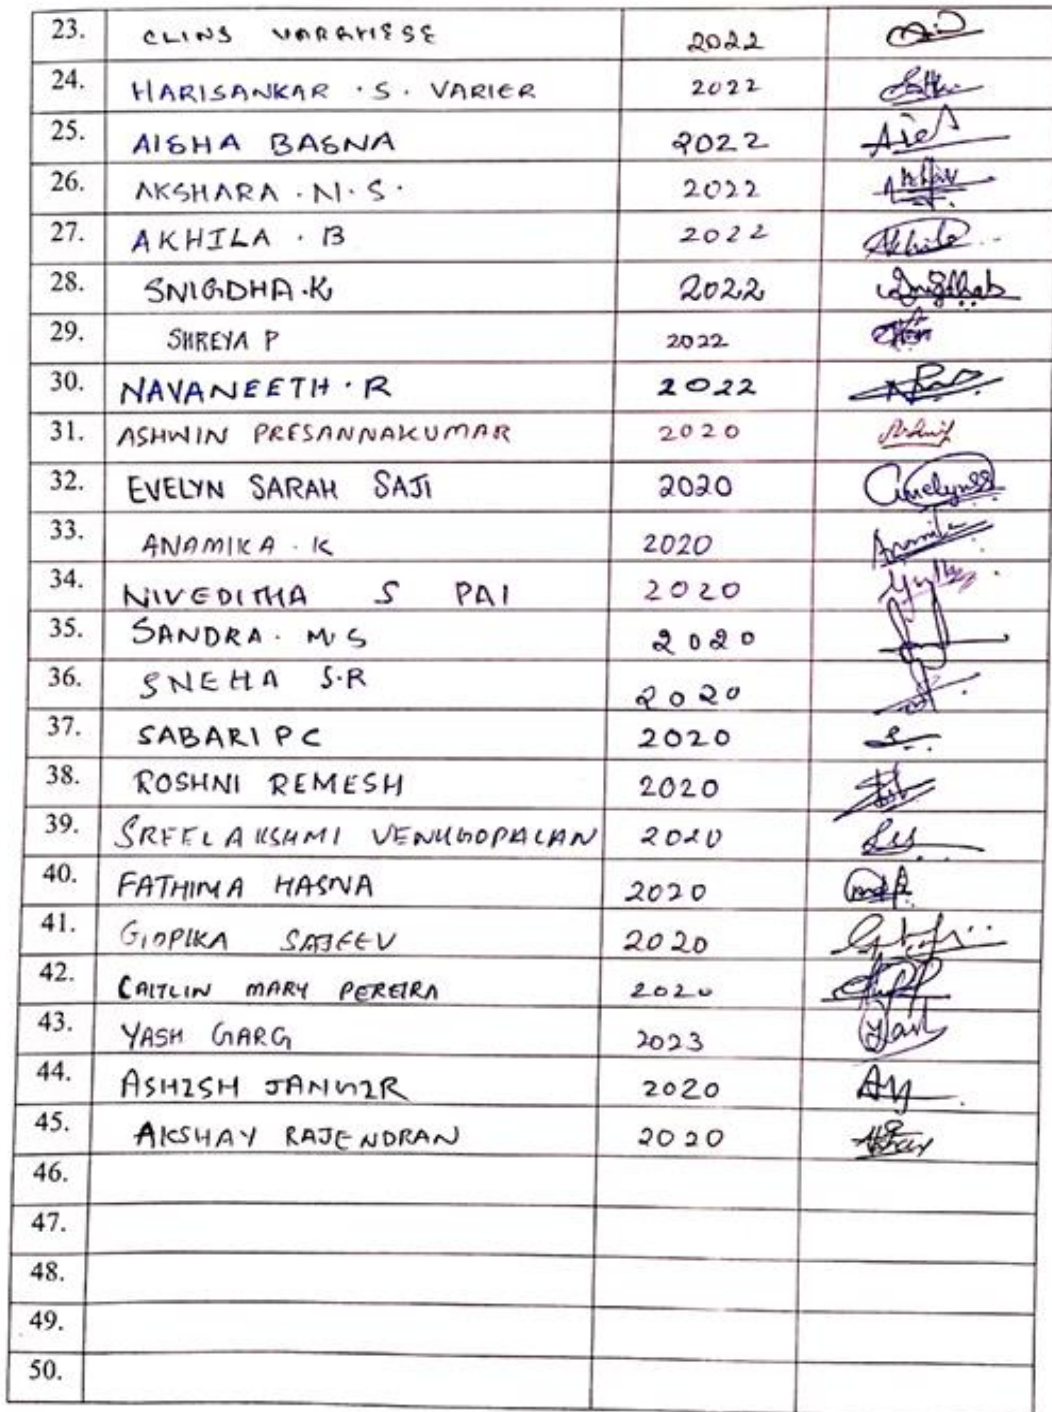 23. CLINS VARGHESE 2022
24. HARISANKAR . S. VARIER 2022
25. AISHA BASNA 2022
26. AKSHARA . N. S. 2022
27. AKHILA . B 2022 Akhila
28. SNIGDHA.K 2022
29. SHREYA P 2022
30. NAVANEETH . R 2022
31. ASHWIN PRESANNAKUMAR 2020
32. EVELYN SARAH SAJI 2020
33. ANAMIKA . K 2020 Anamika
34. NIVEDITHA S PAI 2020
35. SANDRA. M.S 2020
36. SNEHA S.R 2020
37. SABARI P C 2020
38. ROSHNI REMESH 2020
39. SREELAKSHMI VENUGOPALAN 2020
40. FATHIMA HASNA 2020
41. GOPIKA SAJEEV 2020
42. CAITLIN MARY PEREIRA 2020
43. YASH GARG 2023 Yash
44. ASHISH 2020
45. AKSHAY RAJENDRAN 2020
46.
47.
48.
49.
50.